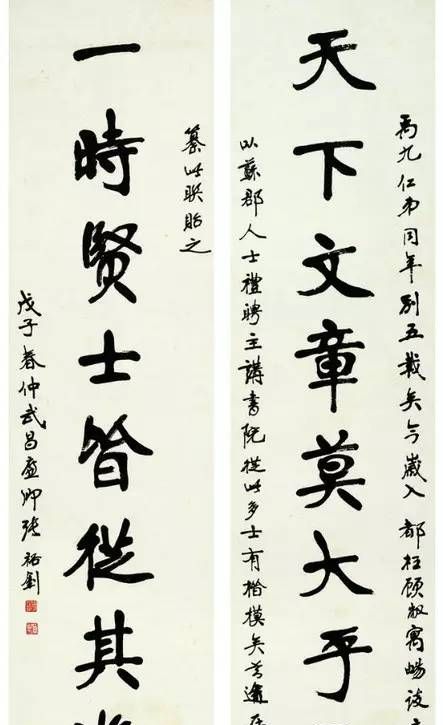 禹九仁弟同年別五載矣今歲入 都枉顧敝寓暢談
天下文章莫大乎
以蘇郡人士禮聘主講書院從此多士有楷模矣
纂此聯貽之
一時賢士皆從其
戊子春仲武昌廉卿張裕釗